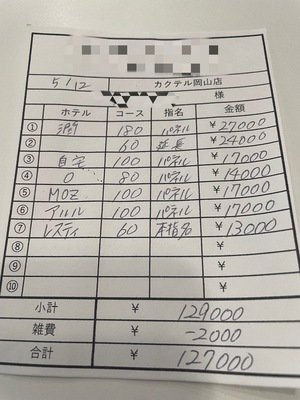 5/12 カクテル岡山店
様
ホテル コース 指名 金額
① 180 パネル ¥27000
② 60 延長 ¥24000
③ 自宅 100 パネル ¥17000
④ O 80 パネル ¥14000
⑤ MOZ 100 パネル ¥17000
⑥ アルル 100 パネル ¥17000
⑦ レスティ 60 本指名 ¥13000
⑧ ¥
⑨ ¥
⑩ ¥
小計 ¥ 129000
雑費 ¥ -2000
合計 ¥ 127000